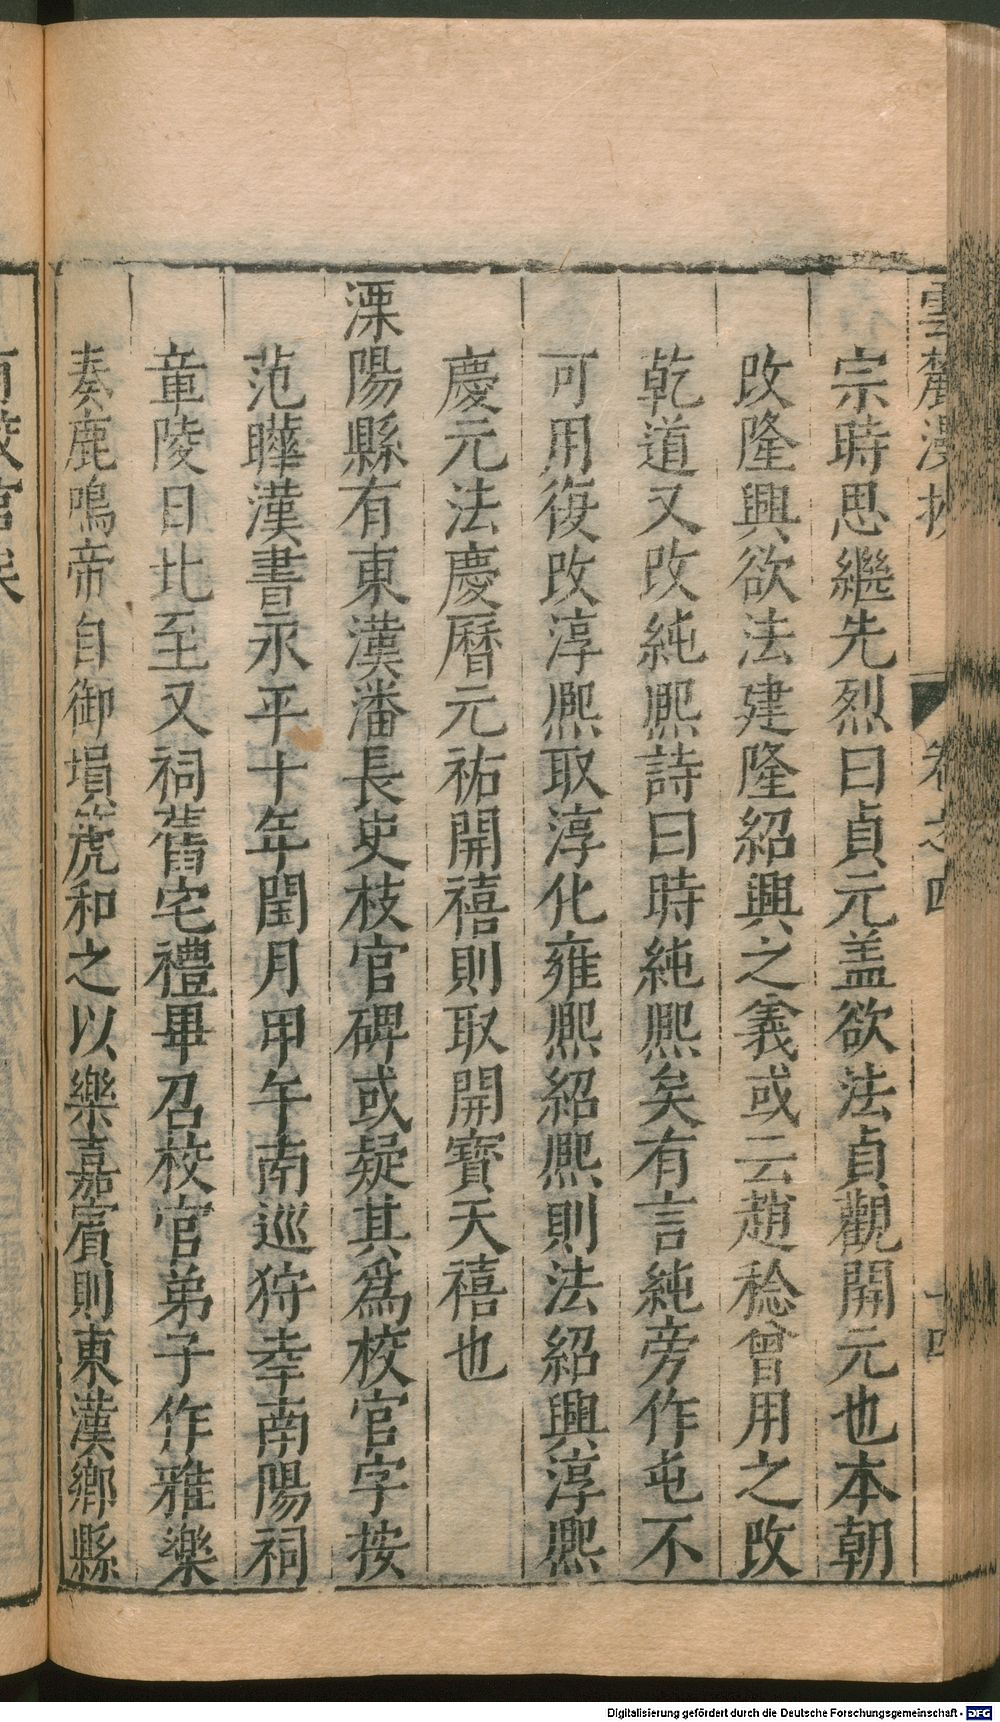 雲麓漫抄 卷之四 十四
宗時思繼先烈曰貞元盖欲法貞觀開元也本朝
改隆興欲法建隆紹興之義或云趙稔曾用之改
乾道又改純熈詩曰時純熈矣有言純旁作屯不
可用復改淳熈取淳化雍熈紹熈則法紹興淳熈
慶元法慶曆元祐開禧則取開寳天禧也
溧陽縣有東漢潘長史校官碑或疑其爲校官字按
范曄漢書永平十年閏月甲午南巡狩幸南陽祠
章陵日北至又祠舊宅禮畢召校官弟子作雅樂
奏鹿鳴帝自御塤箎和之以樂嘉賓則東漢鄉縣
有校官矣
Digitalisierung gefördert durch die Deutsche Forschungsgemeinschaft - DFG